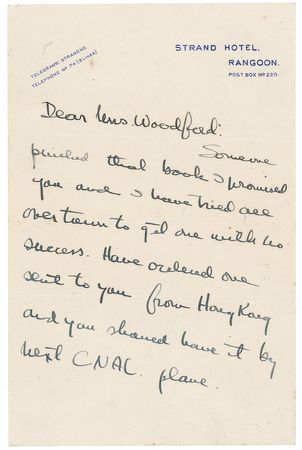 STRAND HOTEL,
RANGOON.
POST BOX Nº 220.
TELEGRAMS: STRANDHO
TELEPHONE Nº 74 (3 LINES)
Dear Mrs. Woodfeed:
Someone
pinched that book I promised
you and I have tried all
over town to get one with no
success. Have ordered one
sent to you from Hong Kong
and you should have it by
next CNAC. plane.